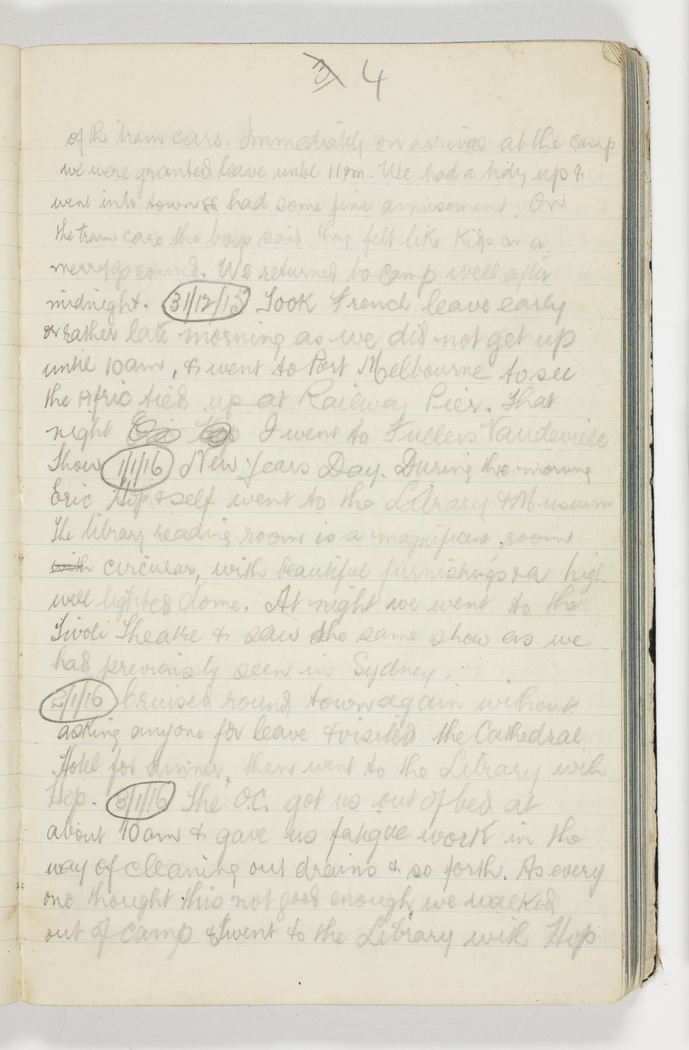 3 4
of the tram cars. Immediately on arrival at the camp
we were granted leave until 11pm. We had a tidy up &
went into town & had some fine amusement. On
the tram cars the boys said they felt like kids on a
merrygoround. We returned to camp well after
midnight. 31/12/15 Took French leave early
or rather late morning as we did not get up
until 10am, & went to Port Melbourne to see
the Afric tied up at Railway Pier. That
night I went to Fullers Vaudeville
Show 1/1/16 New Years Day. During the morning
Eric Hop & self went to the Library & Museum
The library reading room is a magnificent room
with circular, with beautiful furnishings & a high
well lighted dome. At night we went to the
Tivoli Theatre & saw the same show as we
had previously seen in Sydney.
2/1/16 Cruised round town again without
asking anyone for leave & visited the Cathedral
Hotel for dinner, then went to the Library with
Hop. 3/1/16 The O.C. got us out of bed at
about 10am & gave us fatigue work in the
way of cleaning out drains & so forth. As every
one thought this not good enough we walked
out of camp & I went to the Library with Hop